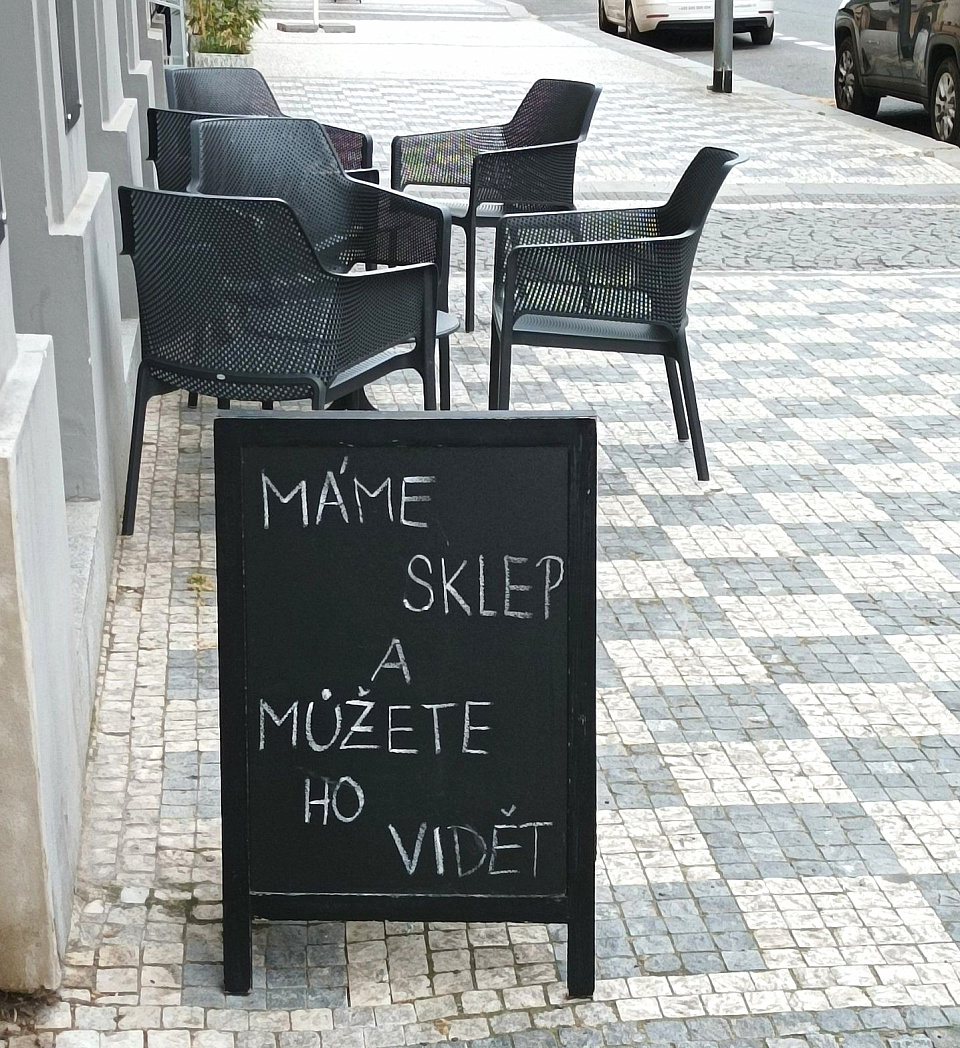 MÁME
SKLEP
A
MŮŽETE
HO
VIDĚT